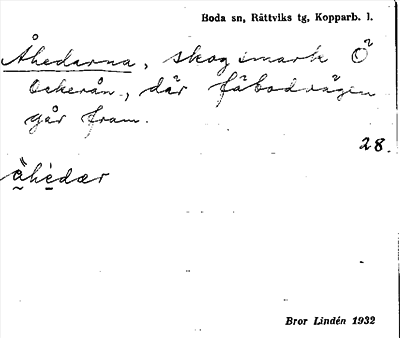 Boda sn, Rättviks tg, Kopparb. l.
Åhedarna, skogsmark Ö
Ockerån, där fäbodvägen
går fram.
28.
åhedær
Bror Lindén 1932